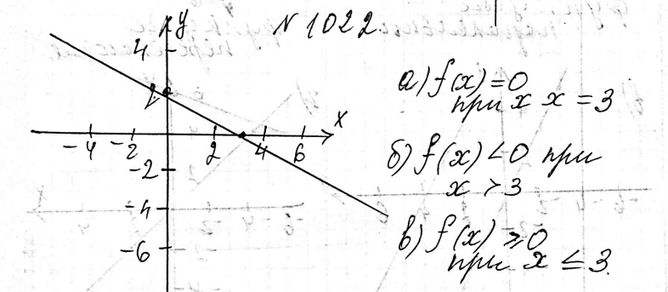 N 1022.
y
4
x
-4 -2 2 4 6
-2
-4
-6
а) f(x)=0
при x x = 3
б) f(x) < 0 при
x > 3
в) f(x) ⩾ 0
при x ≤ 3.